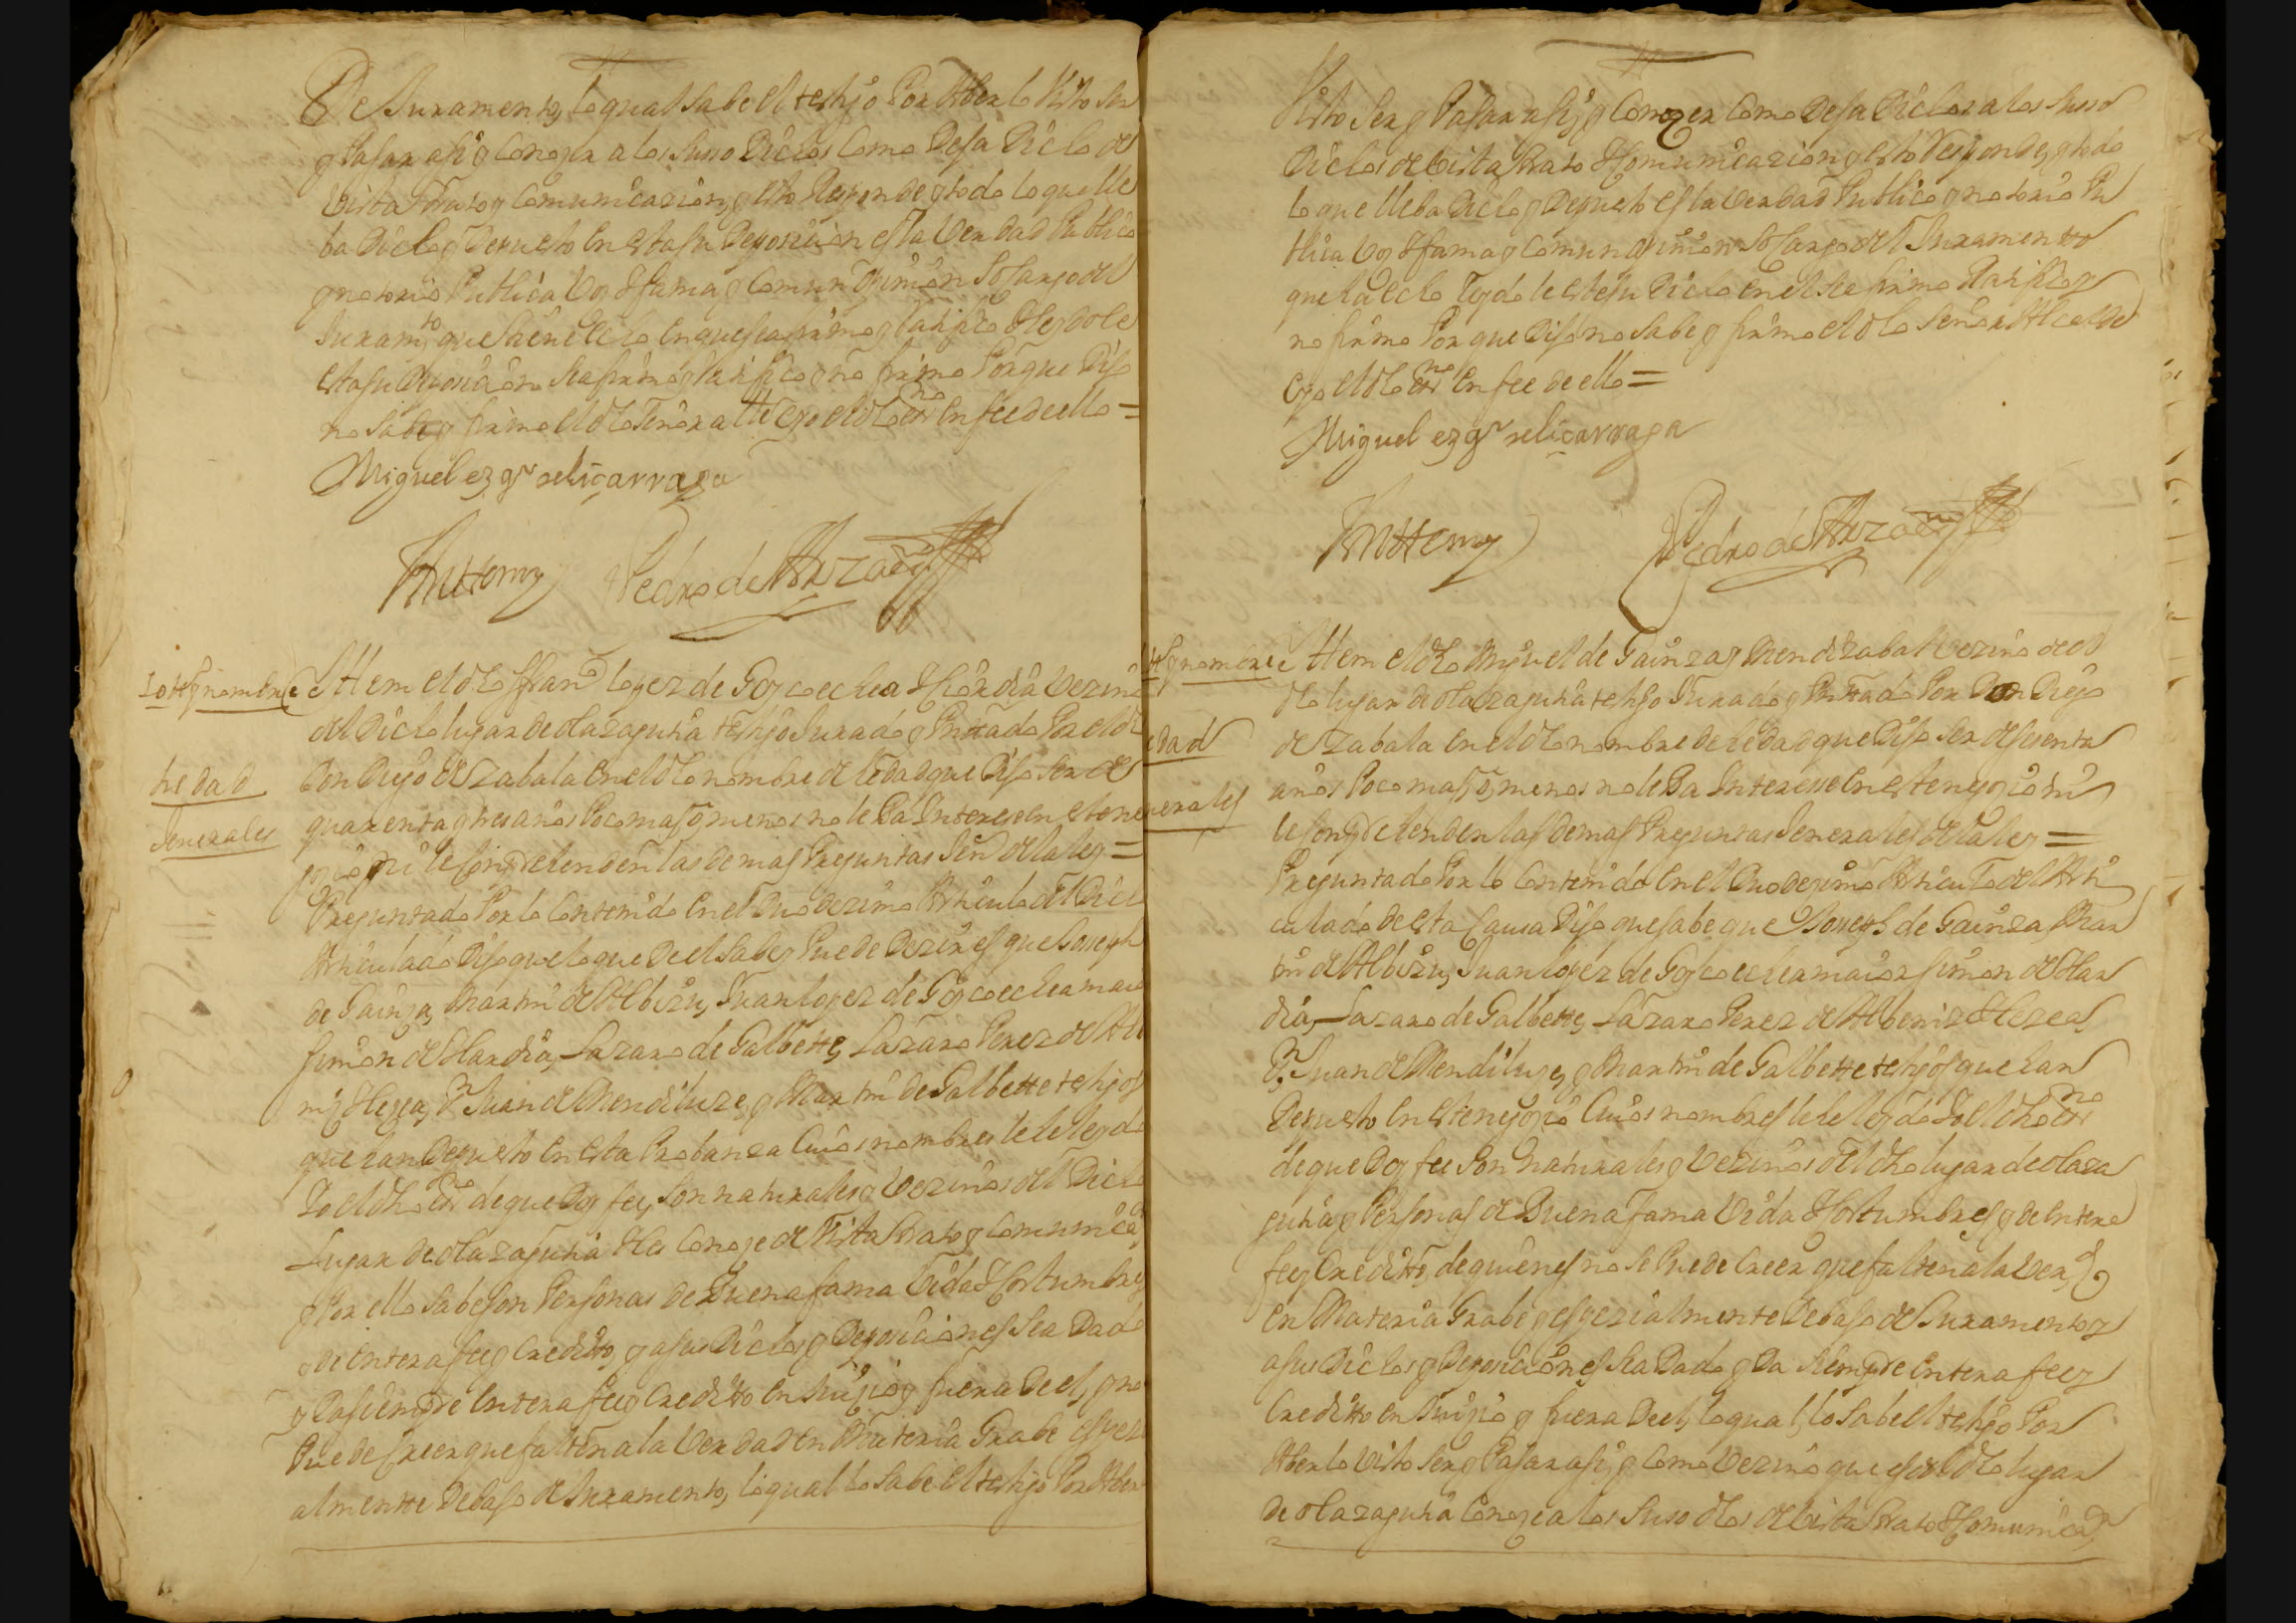 De Juramento, lo qual sabe el testigo Por Aberlo Visto ser
y Pasar asi y Conozer a los suso Dichos Como Desa Dicho de
Vista Trato y Comunicazion, y esto Responde y todo lo que lle
ba Dicho y Depuesto en esta su Deposicion es la Verdad Publico
y notorio Publica Voz y fama y Comun Opinion So cargo del
Juramto que tiene hecho en que se afirmo y Ratifico y leydole
esta su Deposicion se afirmo y Ratifico y no firmo Porque Dijo
no Saber y firmo el dho Señor Alle e yo el dho essno en fee de ello =
Miguel ez gr. de liçarraga
Ante my Pedro de Arzaez
10 tsgo nombre
Ittem el dho Frano lopez de Goycoechea Hordia Vezino
del Dicho lugar de olazagutia testigo Jurado y Pnttado Por el dho
Don Diego de Zabala en el dho nombre de
hedad
hedad que Dijo ser de
quarenta y tres años Poco mas o menos no le Ba Interes en este ne
Jenerales
gocio ni le Conprehenden las demas Preguntas Jens de la ley =
Preguntado Por lo Contenido en el Duodezimo Articulo del Dicho
Articulado Dijo que lo que De el Sabe y Puede Dezir es que Joneph
de Gainza, Martin de Albizu, Juan lopez de Goycoechea maior
Simon de Hordia, Lazaro de Galbette, Lazaro Perez de Albe
niz Hezea, D. Juan de Mendiluze, y Martin de Galbette testigos
que han Depuesto en esta Probanza Cuios nombres le he leydo
Yo el dho essno de que Doy fee, Son naturales y Vezinos del Dicho
Lugar de olazagutia y los Conoze de Vista Trato y Comunicaon
y Por ello Sabe son Personas de Buena fama Vida y Costumbres
y de entera fee y Credito, y a sus Dichos y Deposiciones se a Dado
y Da siempre entera fee y Credito en Juizio y fuera De el, y no
Puede Creer que falten a la Verdad en Materia Grabe espezi
almentte Debajo de Juramento, lo qual lo sabe el testigo Por Aberlo
Visto ser y Pasar asi, y Conozer Como Desa Dicho a los suso
Dichos de Vista Trato y Comunicazion y esto Responde, y todo
lo que lleba Dicho y Depuesto es la Verdad Publico y notorio Pu
blica Voz y fama y Comun opinion So cargo del Juramento
que ha echo leydo le este su Dicho en el se afirmo Ratifico y
no firmo Por que Dijo no Sabe y firmo el dho Señor Alcalde
e yo el dho essno en fee de ello =
Miguel ez gr. de liçarraga
Ante my Pedro de Arzaez
tsgo nombre
Ittem el dho Miguel de Gainza y Mendizabal Vezino del
dho lugar de olazagutia testigo Jurado y Pnttado Por Don Diego
edad
de Zabala en el dho nombre de hedad que Dijo ser de sesenta
años Poco mas, o, menos no le Ba Interesse en este negocio ni
Jenerales
le Conprehenden las demas Preguntas Jenerales de la ley =
Preguntado Por lo Contenido en el Duodezimo Articulo del Arti
culado de esta Causa Dijo que sabe que Joneph de Gainza, Mar
tin de Albizu, Juan lopez de Goycoechea maior Simon de Hor
dia, Lazaro de Galbette, Lazaro Perez de Albeniz Hezea
D. Juan de Mendiluze, y Martin de Galbette testigos que han
Depuesto en este negocio Cuios nombres le he leydo Yo el dho essno
de que Doy fee Son naturales y Vezinos del dho lugar de olaza
gutia y Personas de Buena fama Vida y Costumbres y de entera
fee y Credito, de quienes no se Puede Creer que falten a la Verd
en Materia Grabe y espezialmente Debajo de Juramento y
a sus Dichos y Deposiciones se a Dado y Da siempre entera fee y
Credito en Juizio y fuera De el, lo qual, lo sabe el testigo Por
Aberlo Visto ser y Pasar asi, y Como Vezino que es del dho lugar
de olazagutia Conoze a los Suso dhos de Vista Trato y Comunicaon